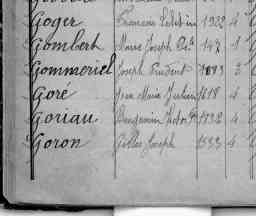 Goger François 1922 4
Gombert Marie Joseph 142 1
Gommeriel Joseph Prudent 1093 3
Goré Jean Marie Julien 1618 4
Goriau Benjamin Victor 1732 4
Goron Gilles Joseph 1533 4